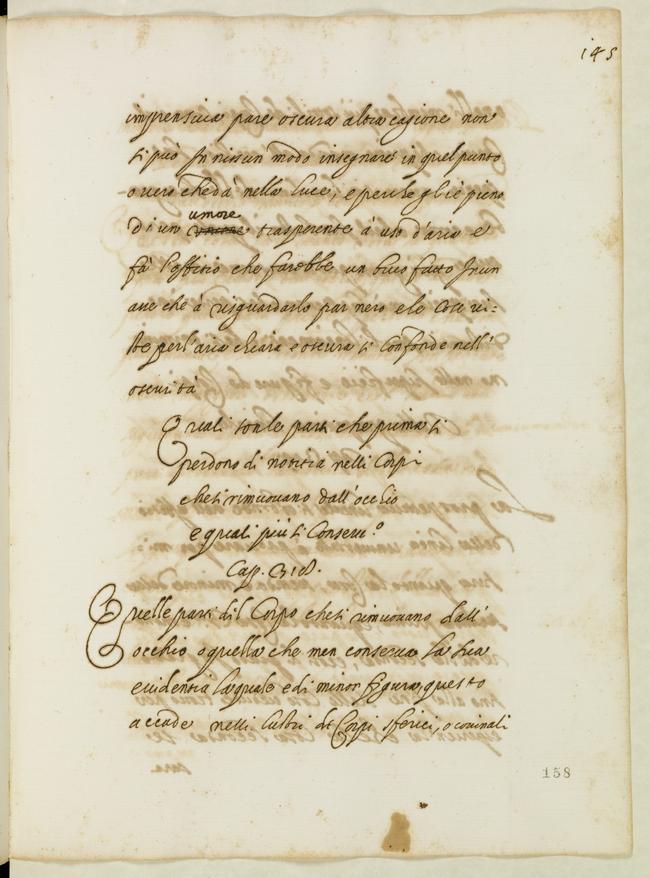 145
imprensiva pare oscura altra cagione non
si può In nissun modo insegnare in quel punto
o vero che dà nella luce, e perche gli è pieno
umore
Di un trasparente à uso d'aria e
fà l'offitio che farebbe un buso fatto In un
asse che à risguardarlo par nero e le cose vi=
ste per l'aria chiara e oscura si Confonde nell'
oscurità
Quali son le parti che prima si
perdono di notitia nelli Corpi
che si rimuovano dall'occhio
e quali più si Conserv.o
Cap. 318.
Quelle parti dil Corpo che si rimuovano dall'
occhio o quella che men conserva la sua
evidentia la quale e di minor figura, questo
accade nelli lustri de Corpi sferici, o coninali
158